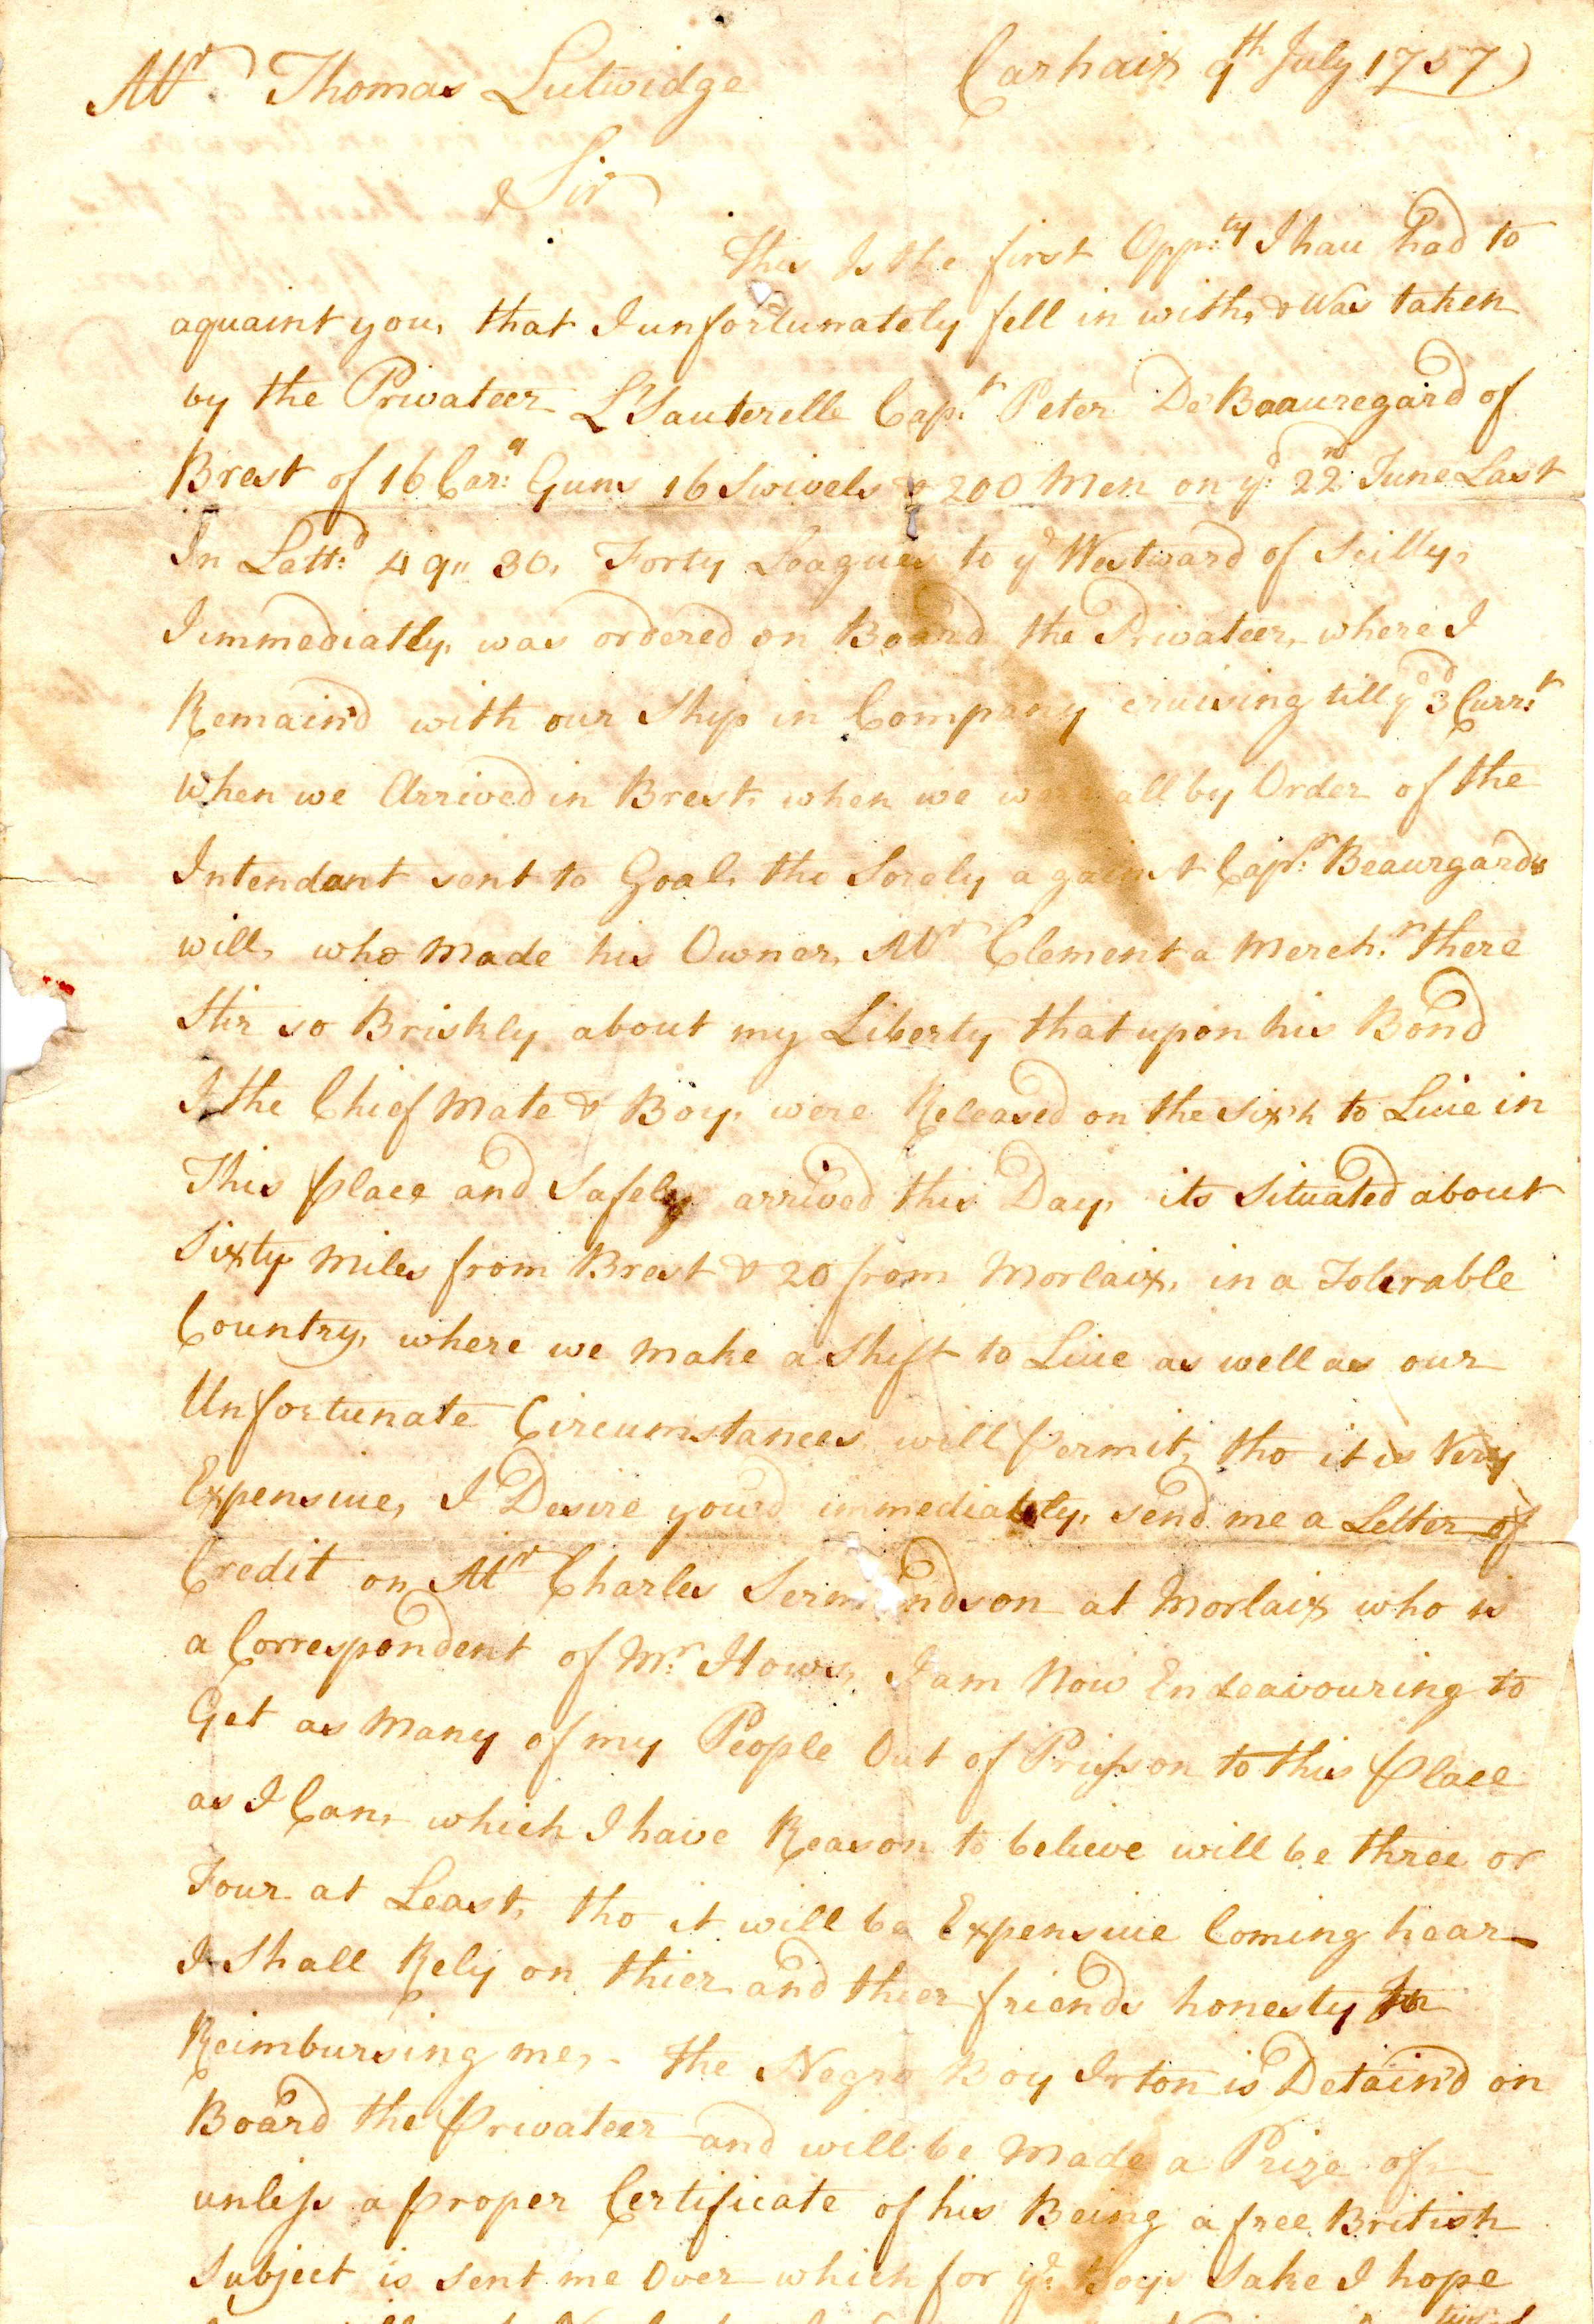 Mr Thomas Lutwidge Carhaix 9th July 1757
Sir
This Is the first Opp:ty I hau had to
aquaint you, that I unfortunately fell in with, & Was taken
by the Privateer L'Sauterelle Cap:t Peter De Baauregard of
Brest of 16 Car:a Guns 16 Swivels & 200 Men on ye 22nd June Last
In Latt:d 49" 30, Forty Leagues to ye Westward of Scilly,
I immediatly, was ordered on Board the Privateer, where I
Remain'd with our Ship in Company cruising till ye 3d Curr:t
When we Arrived in Brest, when we were all by Order of the
Intendant sent to Goal, tho Sorely against Cap:t Beaurgards
will, who Made his Owner, Mr Clement a Merch:t there
Stir so Briskly about my Liberty that upon his Bond
I the Chief Mate & Boy, were Released on the Sixth to Liue in
This place and Safely arrived this Day, its Situated about
Sixty Miles from Brest & 20 from Morlaix, in a Tolerable
Country, where we Make a Shift to Liue as well as our
Unfortunate Circumstances will permit, tho it is Very
Expensiue, I Desire you'd immediately, send me a Letter of
Credit on Mr Charles at Morlaix who is
a Correspondent of Mr: How's, I am Now Endeavouring to
Get as Many of my People Out of Prisson to this place
as I Can, which I have Reason to believe will be three or
Four at Least, tho it will be Expensiue Coming hear
I Shall Rely on thier and thier friends honesty In
Reimbursing me, - the Negro Boy Irton is Detain'd on
Board the privateer and will be Made a Prize of
unless a proper Certificate of his Being a free British
Subject is Sent me Over which for ye Boys Sake I hope